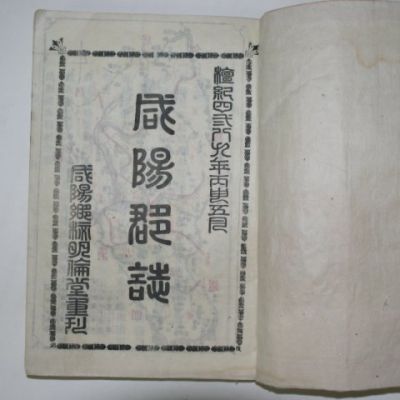 檀紀四弍八九年丙申五月
咸陽郡誌
咸陽鄕校明倫堂重刊